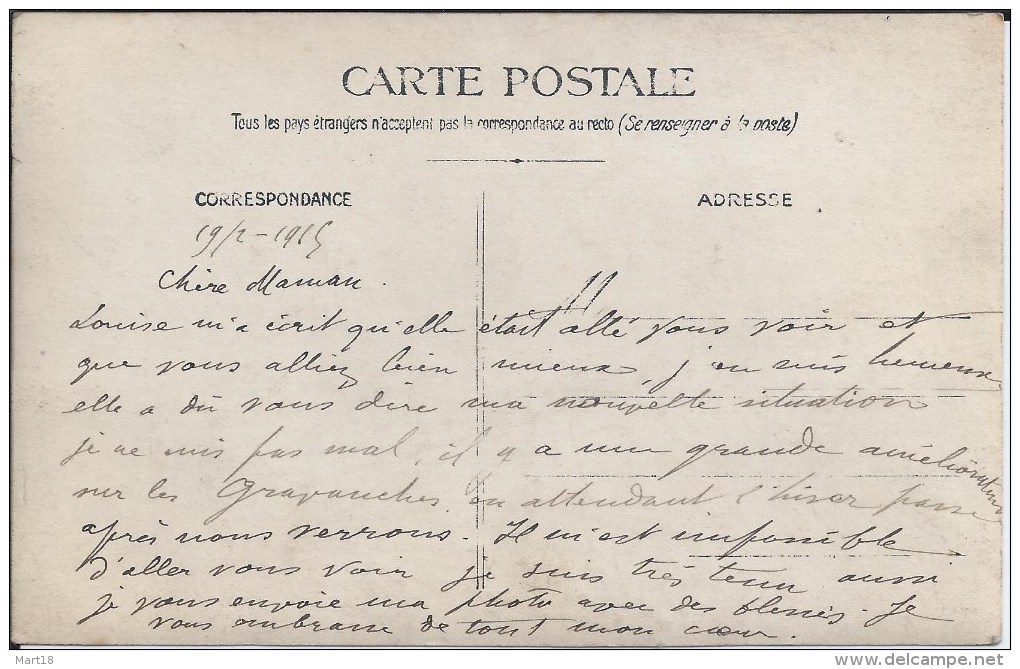 CARTE POSTALE
Tous les pays étrangers n'acceptent pas la correspondance au recto (Se renseigner à la poste)
CORRESPONDANCE
ADRESSE
19/2-1915
Chère Maman.
Louise m'a écrit qu'elle était allé vous voir et
que vous alliez bien mieux, j'en suis heureux
elle a dû vous dire ma nouvelle situation
je ne suis pas mal, il y a une grande amélioration
sur les Gravanches, en attendant l'hiver passe
après nous verrons. Il m'est impossible
d'aller vous voir je suis très tenu aussi
je vous envoie ma photo avec des blessés. Je
vous embrasse de tout mon cœur.
Mart18
www.delcampe.net